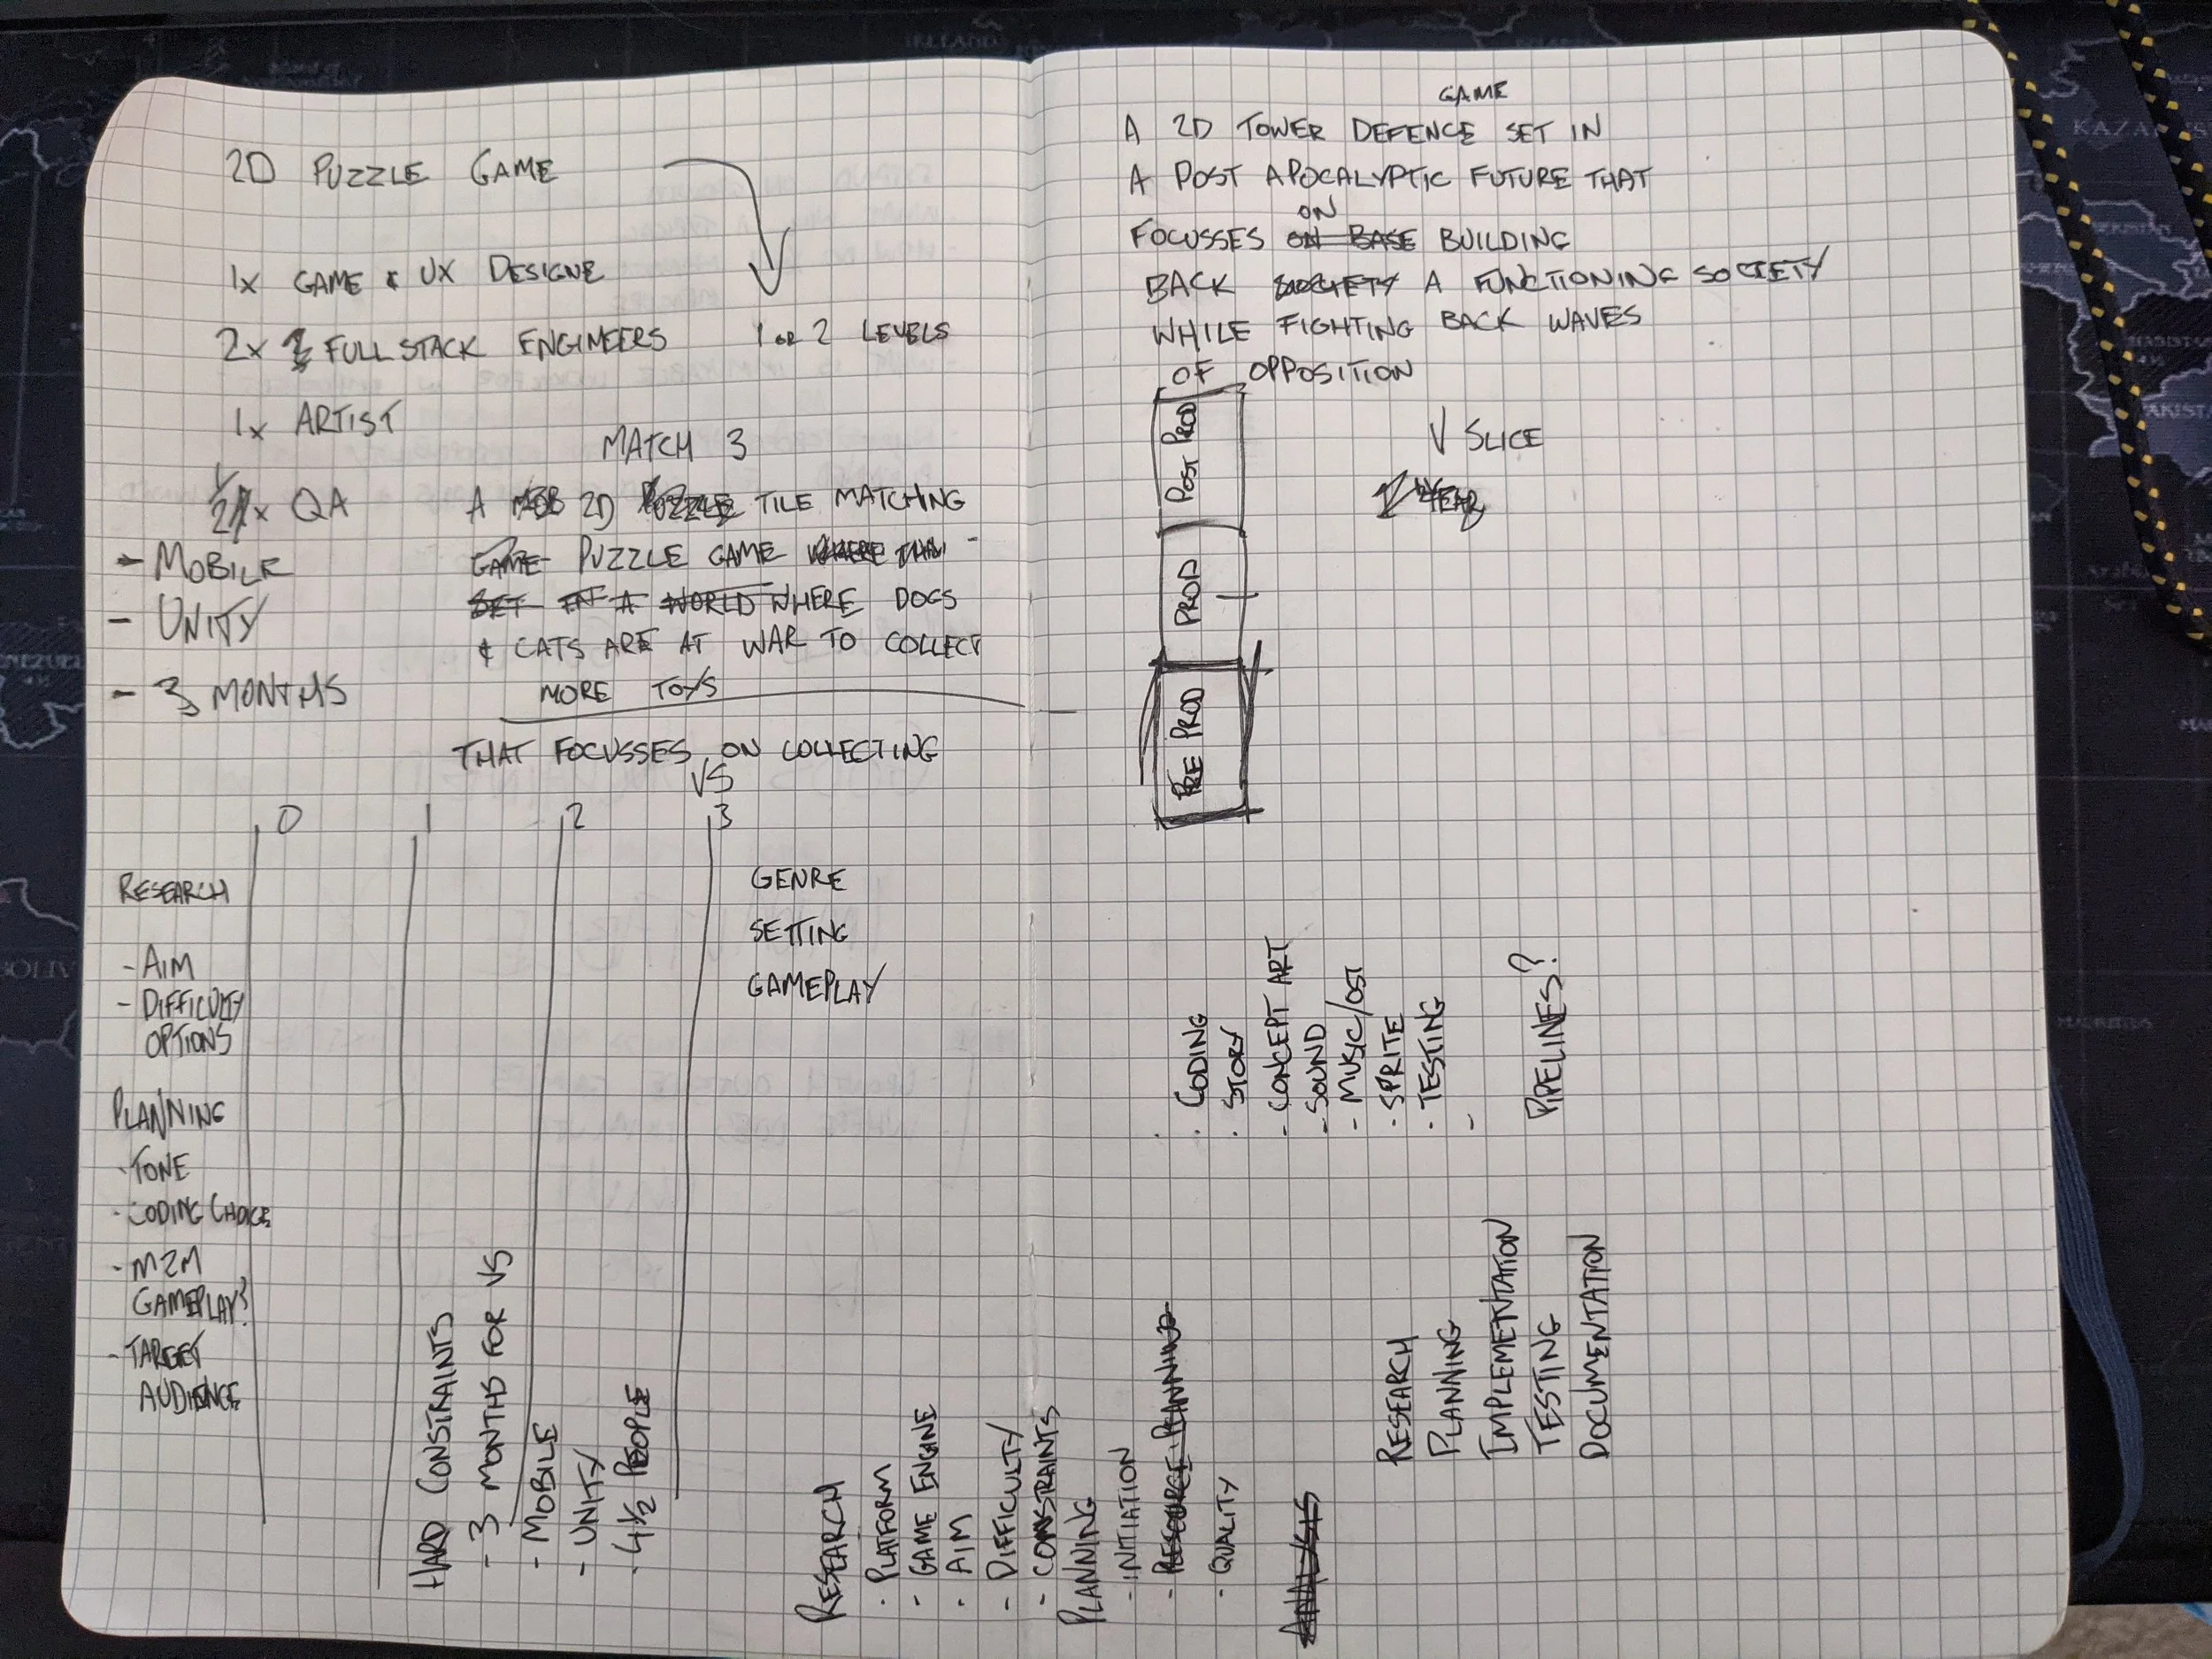 2D PUZZLE GAME
1x GAME & UX DESIGNE
2x FULL STACK ENGINEERS
1 OR 2 LEVELS
1x ARTIST
MATCH 3
1/2 x QA
A 2D PUZZLE TILE MATCHING
GAME PUZZLE GAME WHERE
SET IN A WORLD WHERE DOGS
& CATS ARE AT WAR TO COLLECT
MORE TOYS
- MOBILE
- UNITY
- 3 MONTHS
THAT FOCUSSES ON COLLECTING
VS
0 1 2 3
RESEARCH
- AIM
- DIFFICULTY
OPTIONS
PLANNING
- TONE
- CODING CHOICE
- M2M
GAMEPLAY?
- TARGET
AUDIENCE
GENRE
SETTING
GAMEPLAY
HARD CONSTRAINTS
- 3 MONTHS FOR VS
- MOBILE
- UNITY
- 4 1/2 PEOPLE
RESEARCH
- PLATFORM
- GAME ENGINE
- AIM
- DIFFICULTY
- CONSTRAINTS
PLANNING
- INITIATION
- RESOURCE PLANNING
- QUALITY
ANALYSIS
GAME
A 2D TOWER DEFENCE SET IN
A POST APOCALYPTIC FUTURE THAT
ON
FOCUSSES ON BASE BUILDING
BACK SOCIETY A FUNCTIONING SOCIETY
WHILE FIGHTING BACK WAVES
OF OPPOSITION
V SLICE
YEAR
POST PROD
PROD
PRE PROD
- CODING
- STORY
- CONCEPT ART
- SOUND
- MUSIC/OST
- SPRITE
- TESTING
-
PIPELINES?
RESEARCH
PLANNING
IMPLEMENTATION
TESTING
DOCUMENTATION